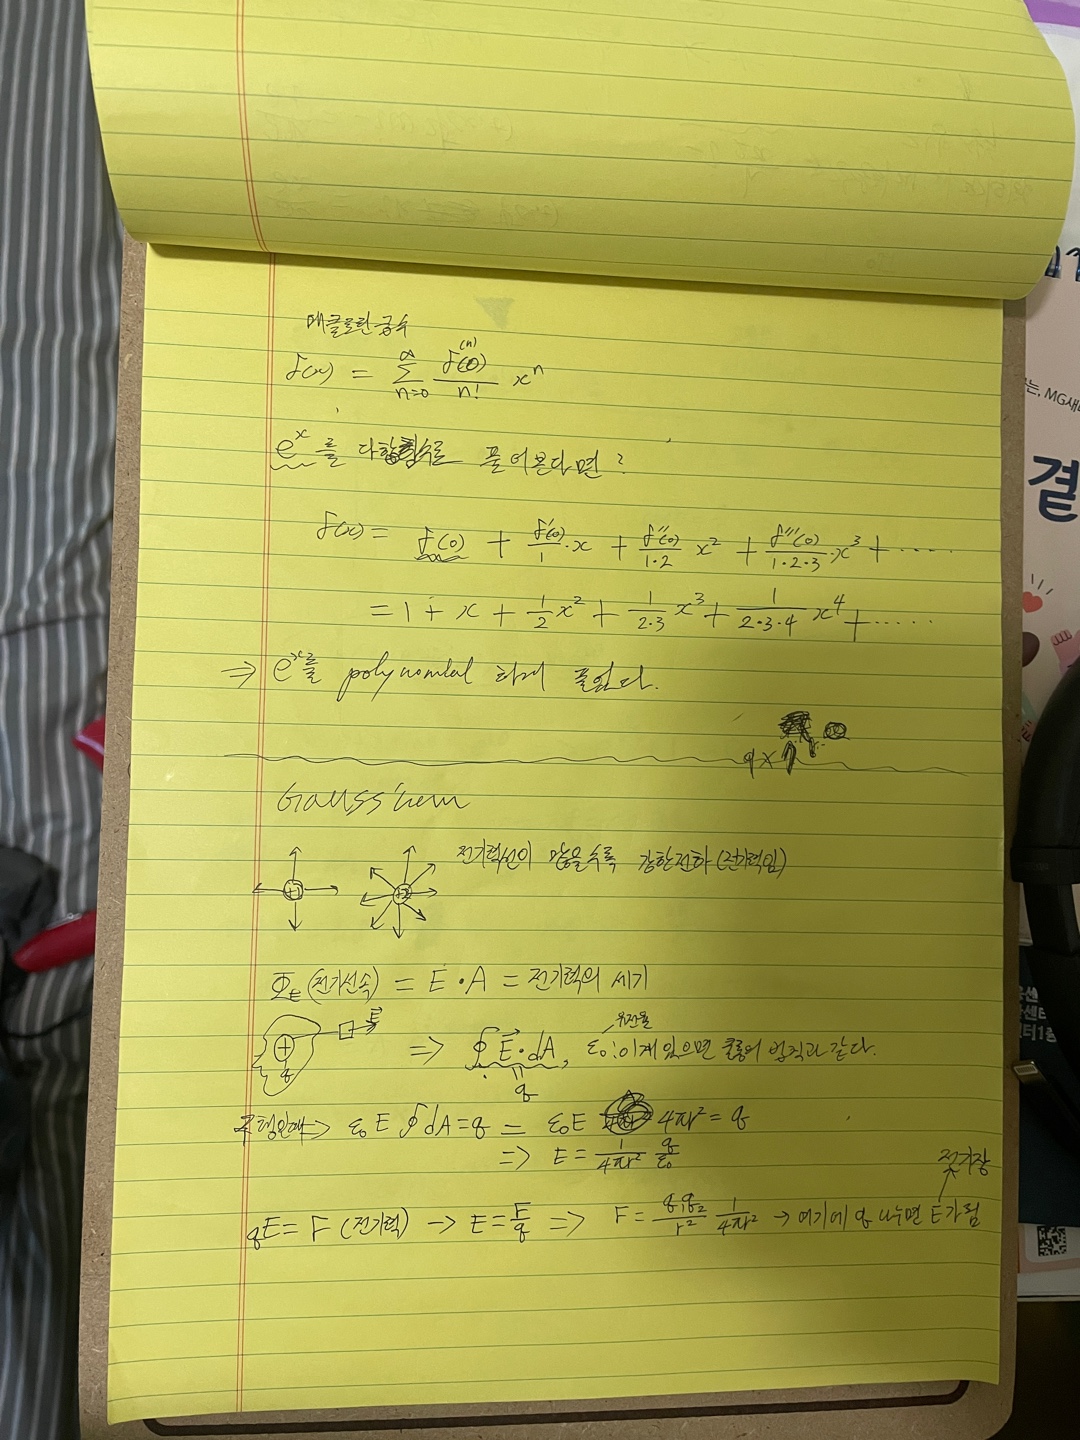 매클로린 급수
f(x) = ∑_{n=0}^{∞} f^{(n)}(0)/n! x^n
e^x 를 다항함수로 풀어본다면?
f(x) = f(0) + f'(0)/1 · x + f''(0)/1·2 x^2 + f'''(0)/1·2·3 · x^3 + ......
= 1 + x + 1/2 x^2 + 1/2·3 x^3 + 1/2·3·4 x^4 + ......
⇒ e^x를 polynomial 하게 풀었다.
9×
Gauss'
전기력선이 많을수록 강한전하 (전기력임)
Φ_E (전기선속) = E · A = 전기력의 세기
+ q E
⇒ ∮ E⃗ · dA, ε₀ : 이게 있으면 쿨롱의 법칙과 같다.
유전율
q
구형일때 → ε₀ E ∮ dA = q = ε₀ E 4πr² = q
⇒ E = 1/4πr² q/ε₀
전기장
qE = F (전기력) → E = F/q ⇒ F = q₁q₂/r² 1/4πr² → 여기에 q 나누면 E가 됨
곁
MG새